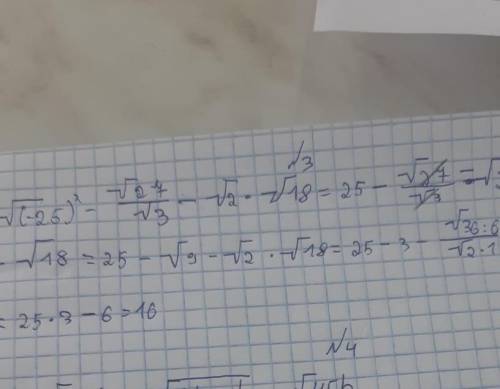 √3
√(-25)² - √27/√3 - √2 · √18 = 25 - √27/√3 = √
- √18 = 25 - √9 - √2 · √18 = 25 - 3 - √36:6/√2·1
= 25 · 3 - 6 = 16
№4
√45b